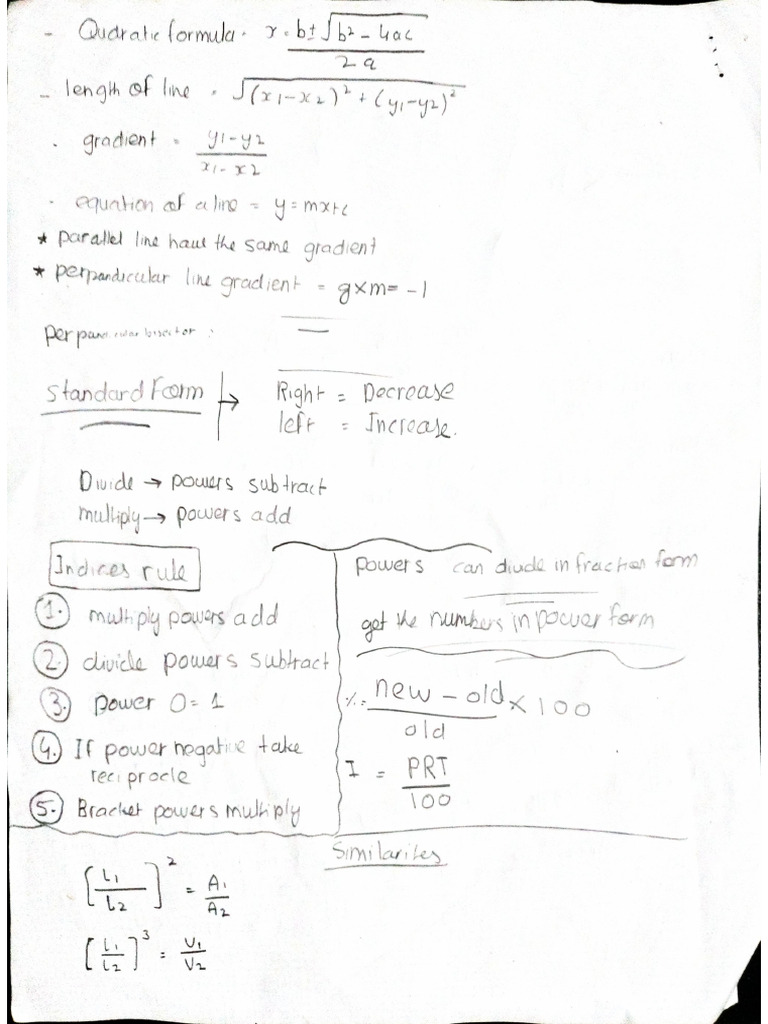 - Qudratic formula. x = b± √b² - 4ac / 2a
- length of line = √(x1-x2)² + (y1-y2)²
. gradient = y1-y2 / x1-x2
. equation of a line = y=mx+c
* parallel line have the same gradient
* perpandicular line gradient = g×m= -1
perpandicular bisector :
Standard Form → Right = Decrease
left = Increase.
Divide → powers subtract
multiply → powers add
Indices rule
1. multiply powers add
2. divide powers subtract
3. power 0 = 1
4. If power negative take
reciprocle
5. Bracket powers multiply
powers can divide in fraction form
get the numbers in power form
%= new - old / old × 100
I = PRT / 100
Similarites
[L1 / L2]² = A1 / A2
[L1 / L2]³ = V1 / V2